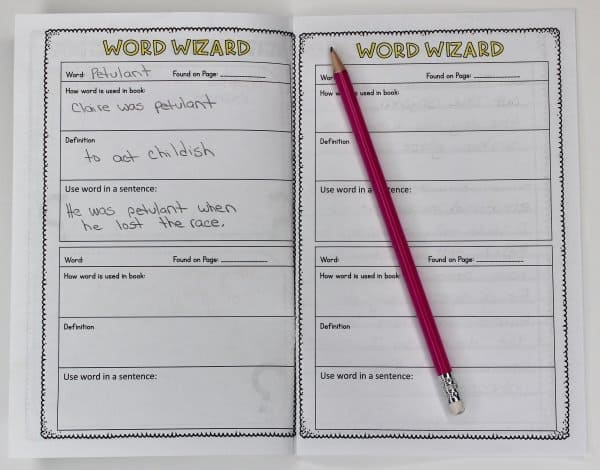 WORD WIZARD
Word: Petulant Found on Page:
How word is used in book:
Claire was petulant
Definition
to act childish
Use word in a sentence:
He was petulant when
he lost the race.
Word: Found on Page:
How word is used in book:
Definition
Use word in a sentence:
WORD WIZARD
Found on Page:
How is used in book:
Definition
Use word in a
Word: Found on Page:
How word is used in book:
Definition
Use word in a sentence: